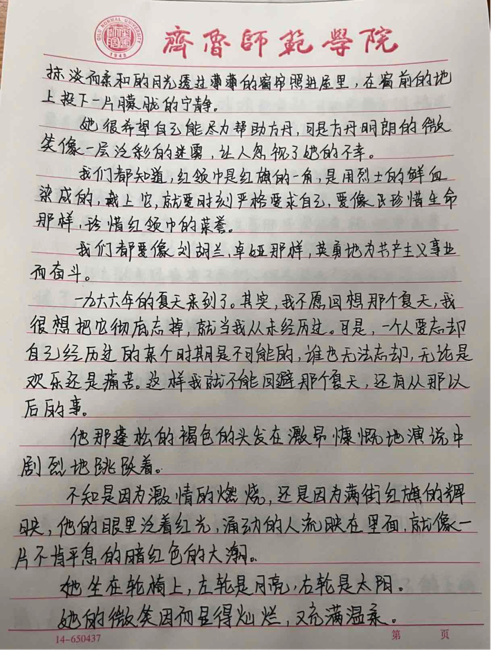 齊魯師範學院
掠淡而柔和的月光透过薄薄的窗帘照进屋里，在窗前的地
上投下一片朦胧的宁静。
她很希望自己能尽力帮助方丹，可是方丹明朗的微
笑像一层泛彩的迷雾，让人忽视了她的不幸。
我们都知道，红领巾是红旗的一角，是用烈士的鲜血
染成的，戴上它，就要时刻严格要求自己，要像珍惜生命
那样，珍惜红领巾的荣誉。
我们都要像刘胡兰，卓娅那样，英勇地为共产主义事业
而奋斗。
一九六六年的夏天来到了。其实，我不愿回想那个夏天，我
很想把它彻底忘掉，就当我从未经历过。可是，一个人要忘却
自己经历过的某个时期是不可能的，谁也无法忘却，无论是
欢乐还是痛苦。这样我就不能回避那个夏天，还有从那以
后的事。
他那蓬松的褐色的头发在激昂慷慨地演说中
剧烈地跳跃着。
不知是因为激情的燃烧，还是因为满街红旗的辉
映，他的眼里泛着红光，涌动的人流映在里面，就像一
片不肯平息的暗红色的大潮。
她坐在轮椅上，左轮是月亮，右轮是太阳。
她的微笑因而显得灿烂，又充满温柔。
14-650437
第 页